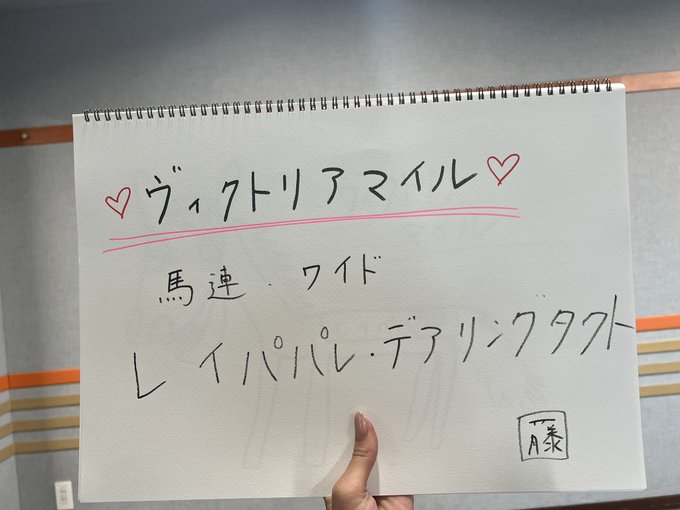 ♡ヴィクトリアマイル♡
馬連・ワイド
レイパパレ・デアリングタクト
藤